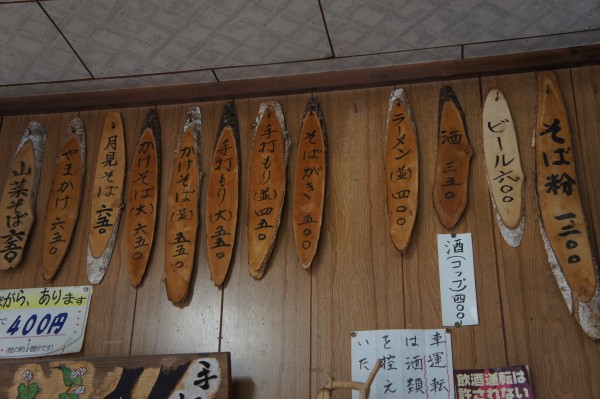 そば粉 一三〇〇
ビール 六〇〇
酒 三五〇
酒(コップ)四〇〇
ラーメン(並)四〇〇
そばがき 五〇〇
手打もり(並)四五〇
手打もり(大)五五〇
かけそば(並)五五〇
かけそば(大)六五〇
月見そば 六五〇
やまかけ 六五〇
山菜そば 六五〇
ながら、あります
400円
車運転
は酒類
を控え
いた
飲酒運転は
許されない
手